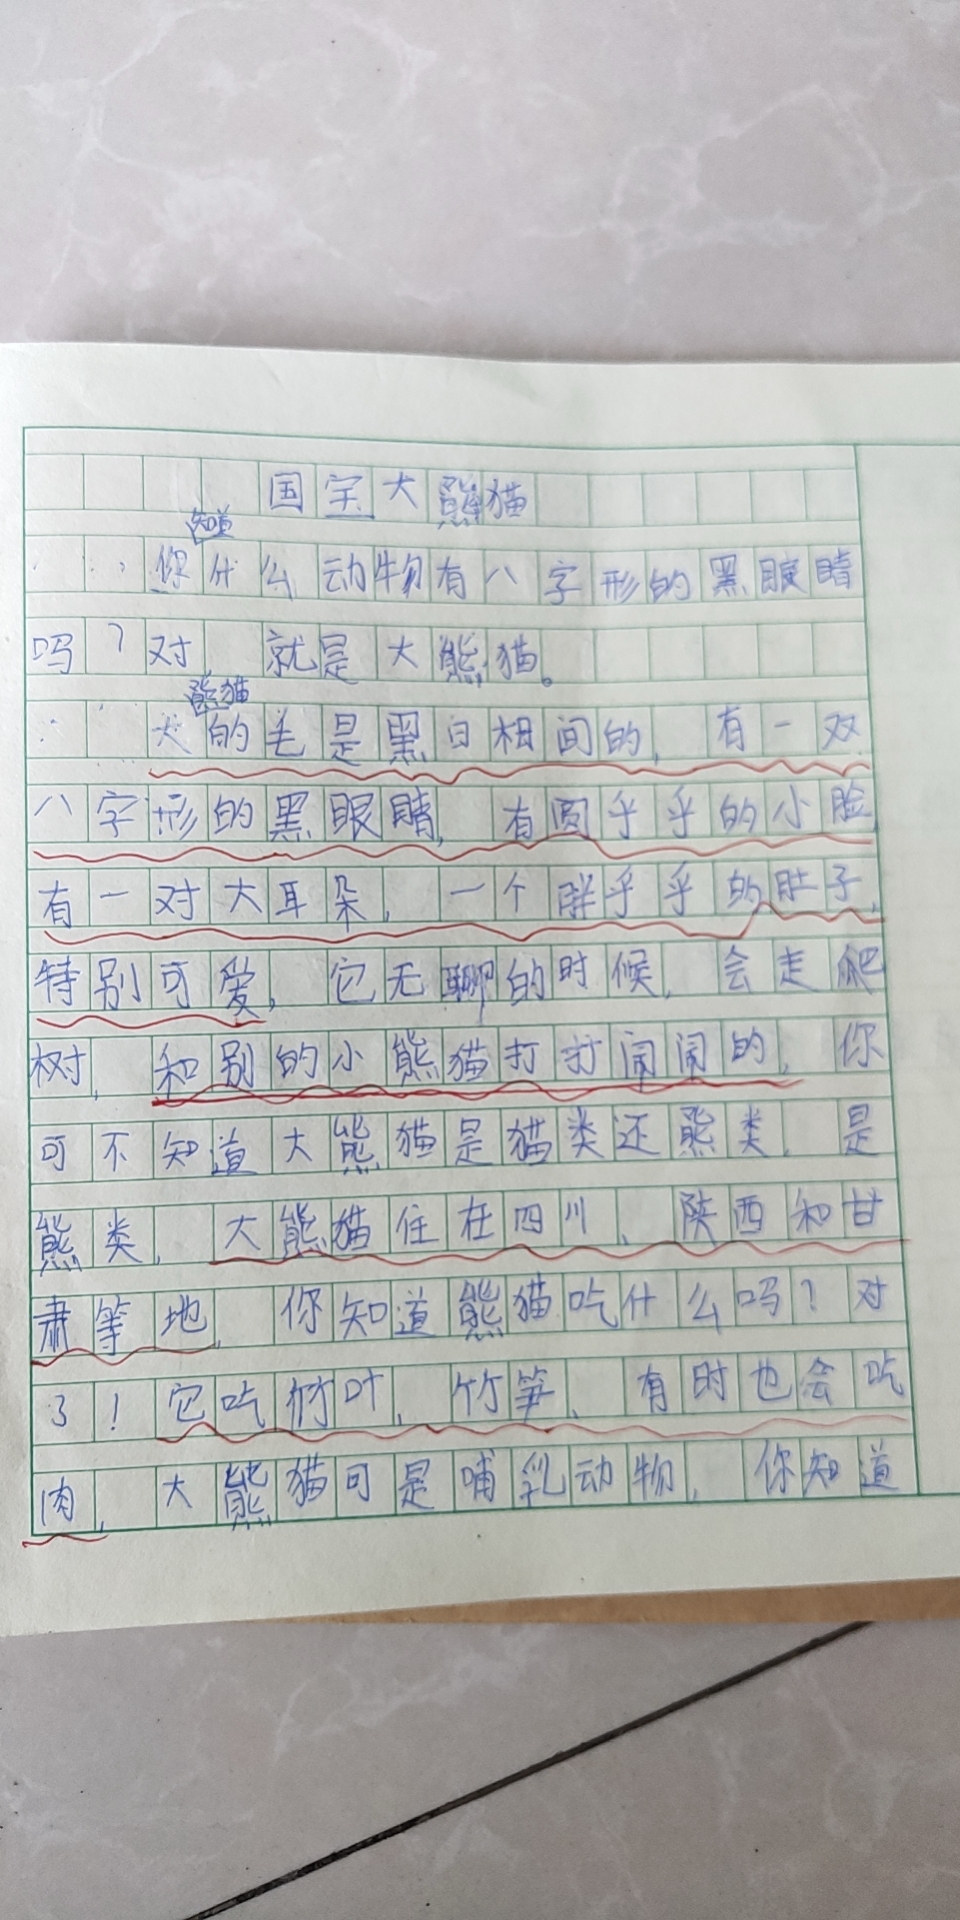 国宝大熊猫
你知道什么动物有八字形的黑眼睛
吗？对，就是大熊猫。
大熊猫的毛是黑白相间的，有一双
八字形的黑眼睛，有圆乎乎的小脸，
有一对大耳朵，一个胖乎乎的肚子，
特别可爱，它无聊的时候，会走爬
树，和别的小熊猫打打闹闹的，你
可不知道大熊猫是猫类还熊类，是
熊类，大熊猫住在四川、陕西和甘
肃等地，你知道熊猫吃什么吗？对
了！它吃竹叶，竹笋、有时也会吃
肉，大熊猫可是哺乳动物，你知道